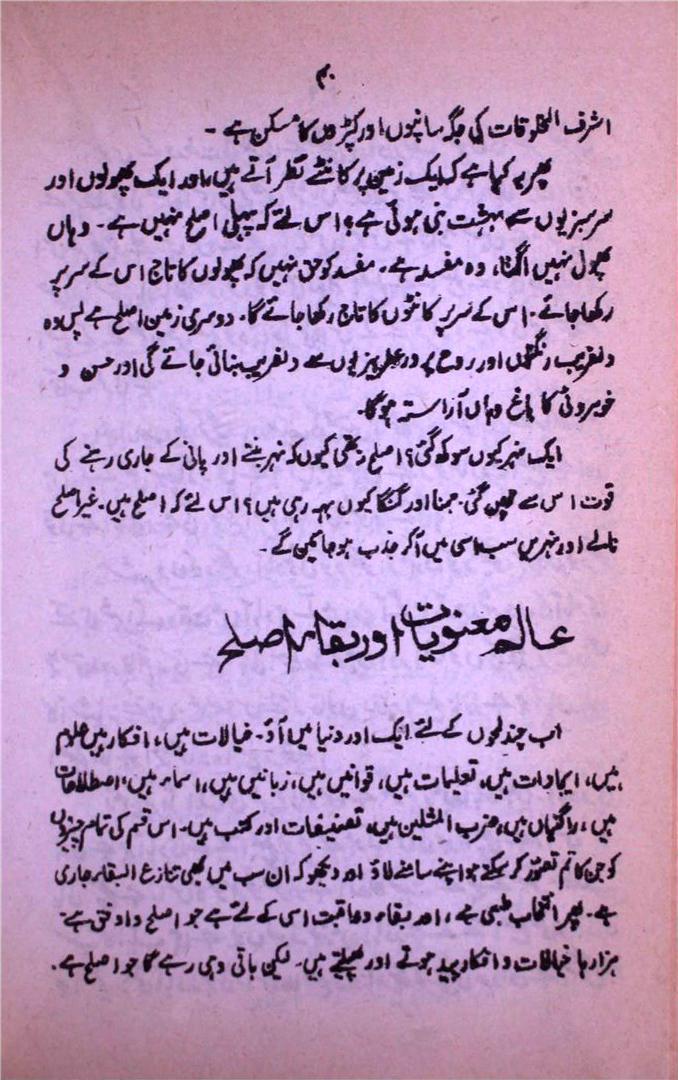 ۴۰
اشرف المخلوقات کی جگہ سانپوں اور کیڑوں کا مسکن ہے۔
پھر یہ کیا ہے کہ ایک زمین پر کانٹے نظر آتے ہیں، اور ایک پھولوں اور
سرسبزیوں سے بہشت بنی ہوئی ہے؟ اس لئے کہ پہلی اصلح نہیں ہے۔ وہاں
پھول نہیں اگتا، وہ مفسد ہے۔ مفسد کو حق نہیں کہ پھولوں کا تاج اس کے سر پر
رکھا جائے۔ اس کے سر پر کانٹوں کا تاج رکھا جائے گا۔ دوسری زمین اصلح ہے پس وہ
دلفریب رنگتوں اور روح پرور عطر بیزیوں سے دلفریب بنائی جائے گی اور حسن و
خوبروئی کا باغ وہاں آراستہ ہوگا۔
ایک نہر کیوں سوکھ گئی؟ اصلح نہ تھی کیوں کہ نہر بننے اور پانی کے جاری رہنے کی
قوت اس سے چھن گئی۔ جمنا اور گنگا کیوں بہہ رہی ہیں؟ اس لئے کہ اصلح ہیں۔ غیر اصلح
نالے اور نہریں سب اسی میں آکر جذب ہو جائیں گے۔
عالم معنویات اور بقاء اصلح
اب چند لمحوں کے لئے ایک اور دنیا میں آؤ۔ خیالات ہیں، افکار ہیں علوم
ہیں، ایجادات ہیں، تعلیمات ہیں، قوانین ہیں، زبانیں ہیں، اسماء ہیں، اصطلاحات
ہیں، راگنیاں ہیں، ضرب المثلیں ہیں، تصنیفات اور کتب ہیں۔ اس قسم کی تمام چیزوں
کو جن کا تم تصور کر سکتے ہو اپنے سامنے لاؤ اور دیکھو کہ ان سب میں بھی تنازع البقاء جاری
ہے۔ پھر انتخاب طبعی ہے، اور بقاء و عاقبت اسی کے لئے ہے جو اصلح و اوفق ہے۔
ہزارہا خیالات و افکار پید ہوتے اور پھیلتے ہیں۔ لیکن باقی وہی رہے گا جو اصلح ہے۔